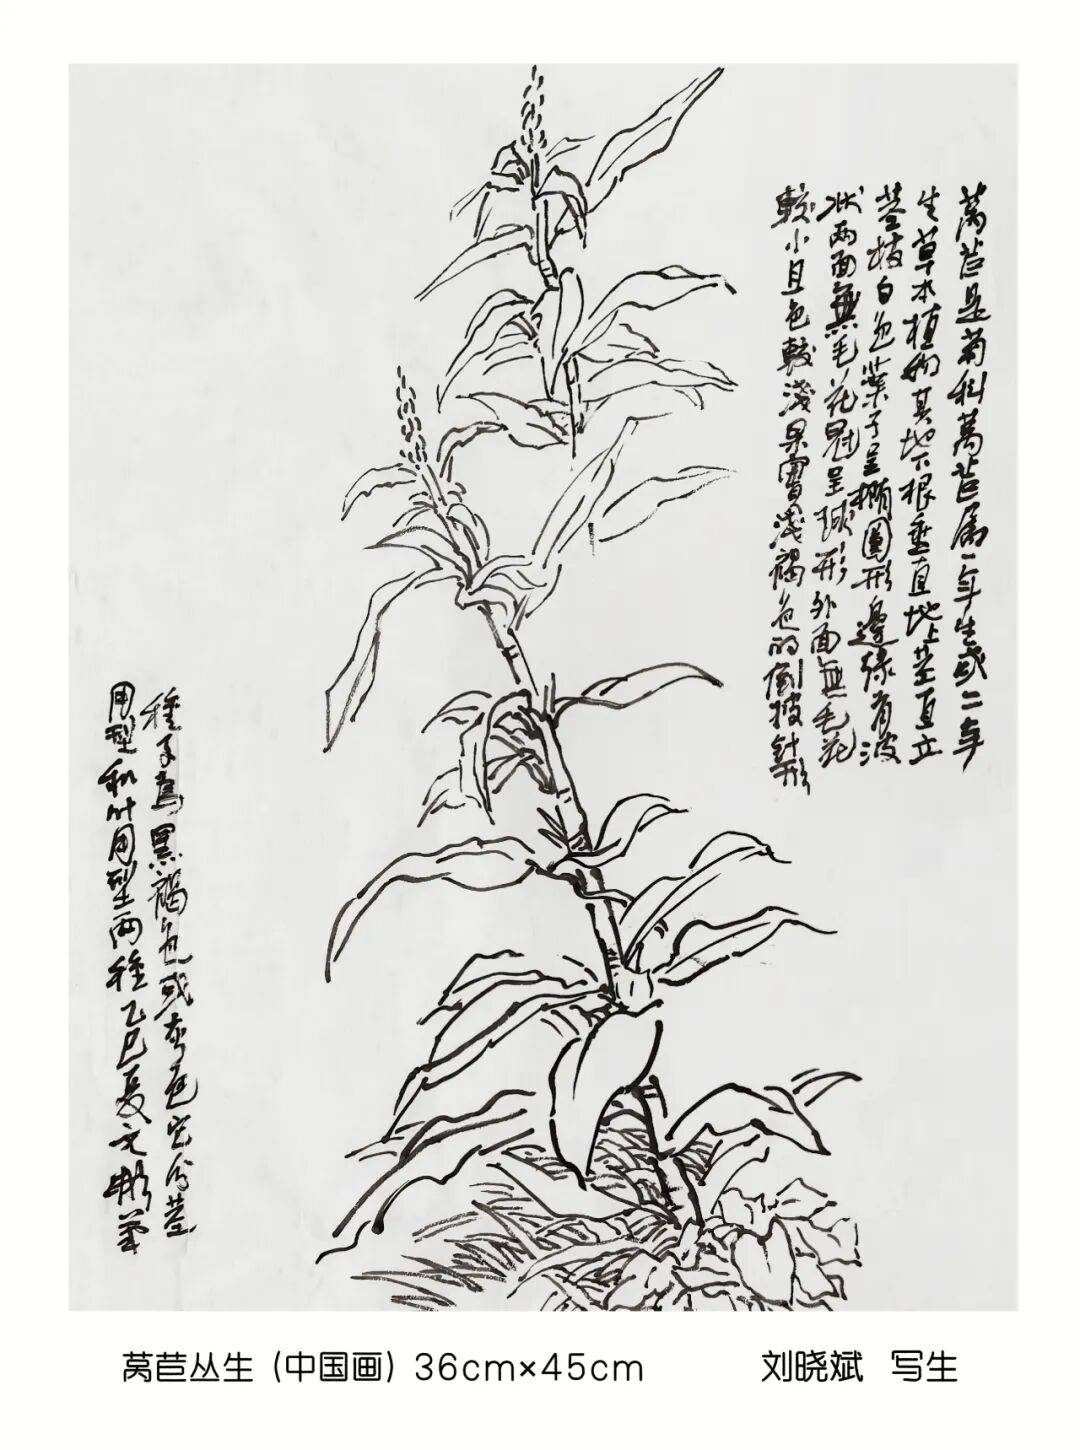 萵苣是菊科萵苣属一年生或二年
生草本植物其地下根垂直地上茎直立
茎枝白色葉子呈橢圓形邊缘有波
状两面無毛花冠呈球形外面無毛花
較小且色較淺果實淺褐色的倒披針形
種子為黑褐色或灰色它分茎
用型和叶用型两種乙巳夏文彬筆
莴苣丛生（中国画）36cm×45cm
刘晓斌 写生